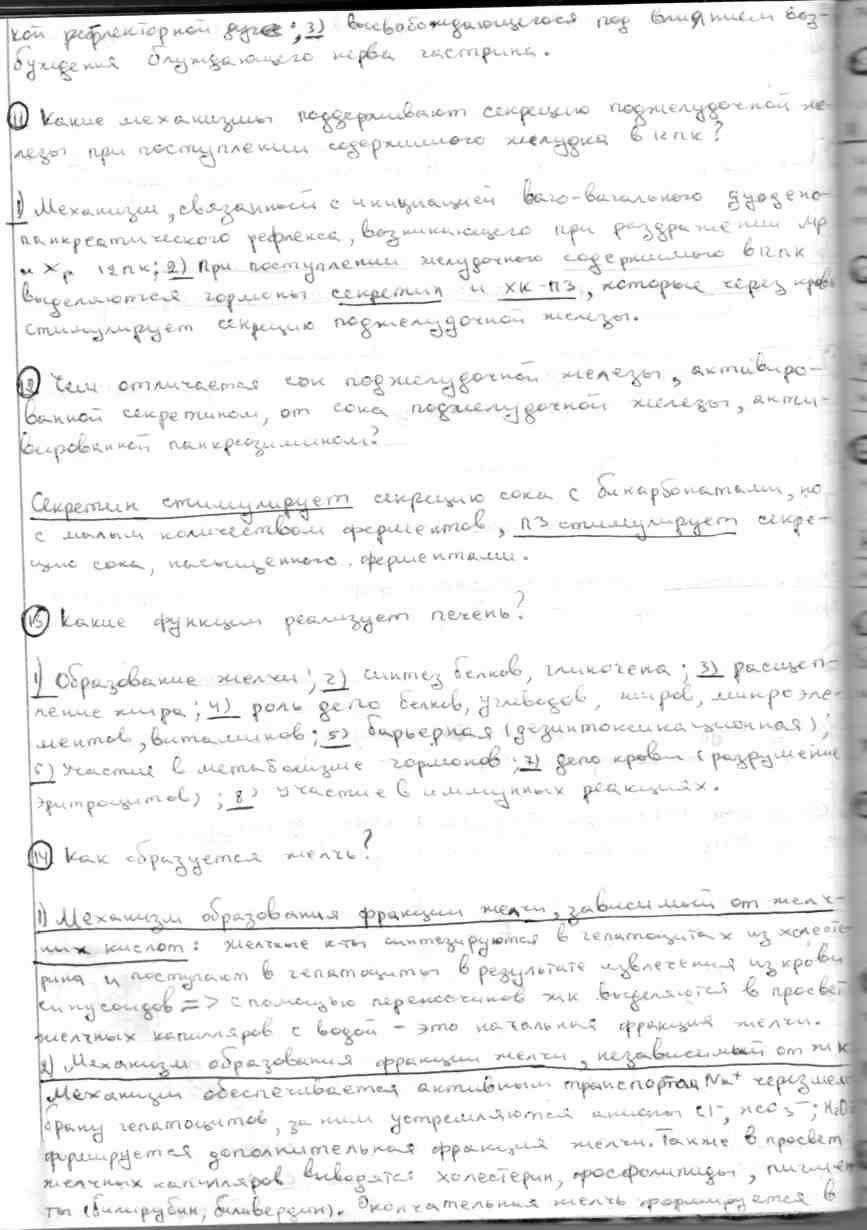 кой рефлекторной дуге; 3) высвобождающегося под влиянием воз-
буждения блуждающего нерва гастрина.
11 Какие механизмы поддерживают секрецию поджелудочной же-
лезы при поступлении содержимого желудка в 12пк?
1) Механизм, связанный с инициацией ваго-вагального дуодено-
панкреатического рефлекса, возникающего при раздражении мр
и хр 12пк; 2) При поступлении желудочного содержимого в 12пк
выделяются гормоны секретин и ХК-ПЗ, которые через кровь
стимулирует секрецию поджелудочной железы.
12 Чем отличается сок поджелудочной железы, активиро-
ванной секретином, от сока поджелудочной железы, акти-
вированной панкреозимином?
Секретин стимулирует секрецию сока с бикарбонатами, но
с малым количеством ферментов, ПЗ стимулирует секре-
цию сока, насыщенного ферментами.
13 Какие функции реализует печень?
1) Образование желчи; 2) синтез белков, гликогена; 3) расщеп-
ление жира; 4) роль депо белков, углеводов, жиров, микроэле-
ментов, витаминов; 5) барьерная (дезинтоксикационная);
6) Участие в метаболизме гормонов; 7) депо крови (разрушение
эритроцитов); 8) Участие в иммунных реакциях.
14 Как образуется желчь?
1) Механизм образования фракции желчи, зависимый от желч-
ных кислот: желчные к-ты синтезируются в гепатоцитах из холесте-
рина и поступают в гепатоциты в результате извлечения из крови
синусоидов => с помощью переносчиков жк выделяются в просвет
желчных капилляров с водой - это начальная фракция желчи.
2) Механизм образования фракции желчи, независимый от жк
Механизм обеспечивается активным транспортом Na+ через мем-
брану гепатоцитов, за ним устремляются анионы Cl-, HCO3-; H2O
формируется дополнительная фракция желчи. Также в просвет
желчных капилляров выводятся холестерин, фосфолипиды, пигмен-
ты (билирубин, биливердин). Окончательная желчь формируется в